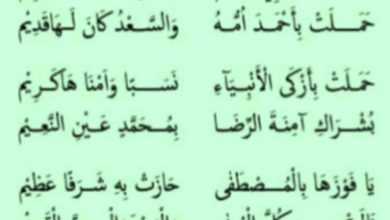 حَمَلَتْ بِأَحْمَدَ اُمُّهُ وَالسَّعْدُ كَانَ لَهَا قَدِيْم
حَمَلَتْ بِأَزْكَى الْأَنْبِيَآءِ نَسَبًا وَاَمْنًا هَاكَرِيْم
بُشْرَاكِ آمِنَةَ الرِّضَا بِمُحَمَّدٍ عَيْنِ النَّعِيْم
يَا فَوْزَهَا بِالْمُصْطَفٰى حَازَتْ بِهِ شَرَفًا عَظِيْم